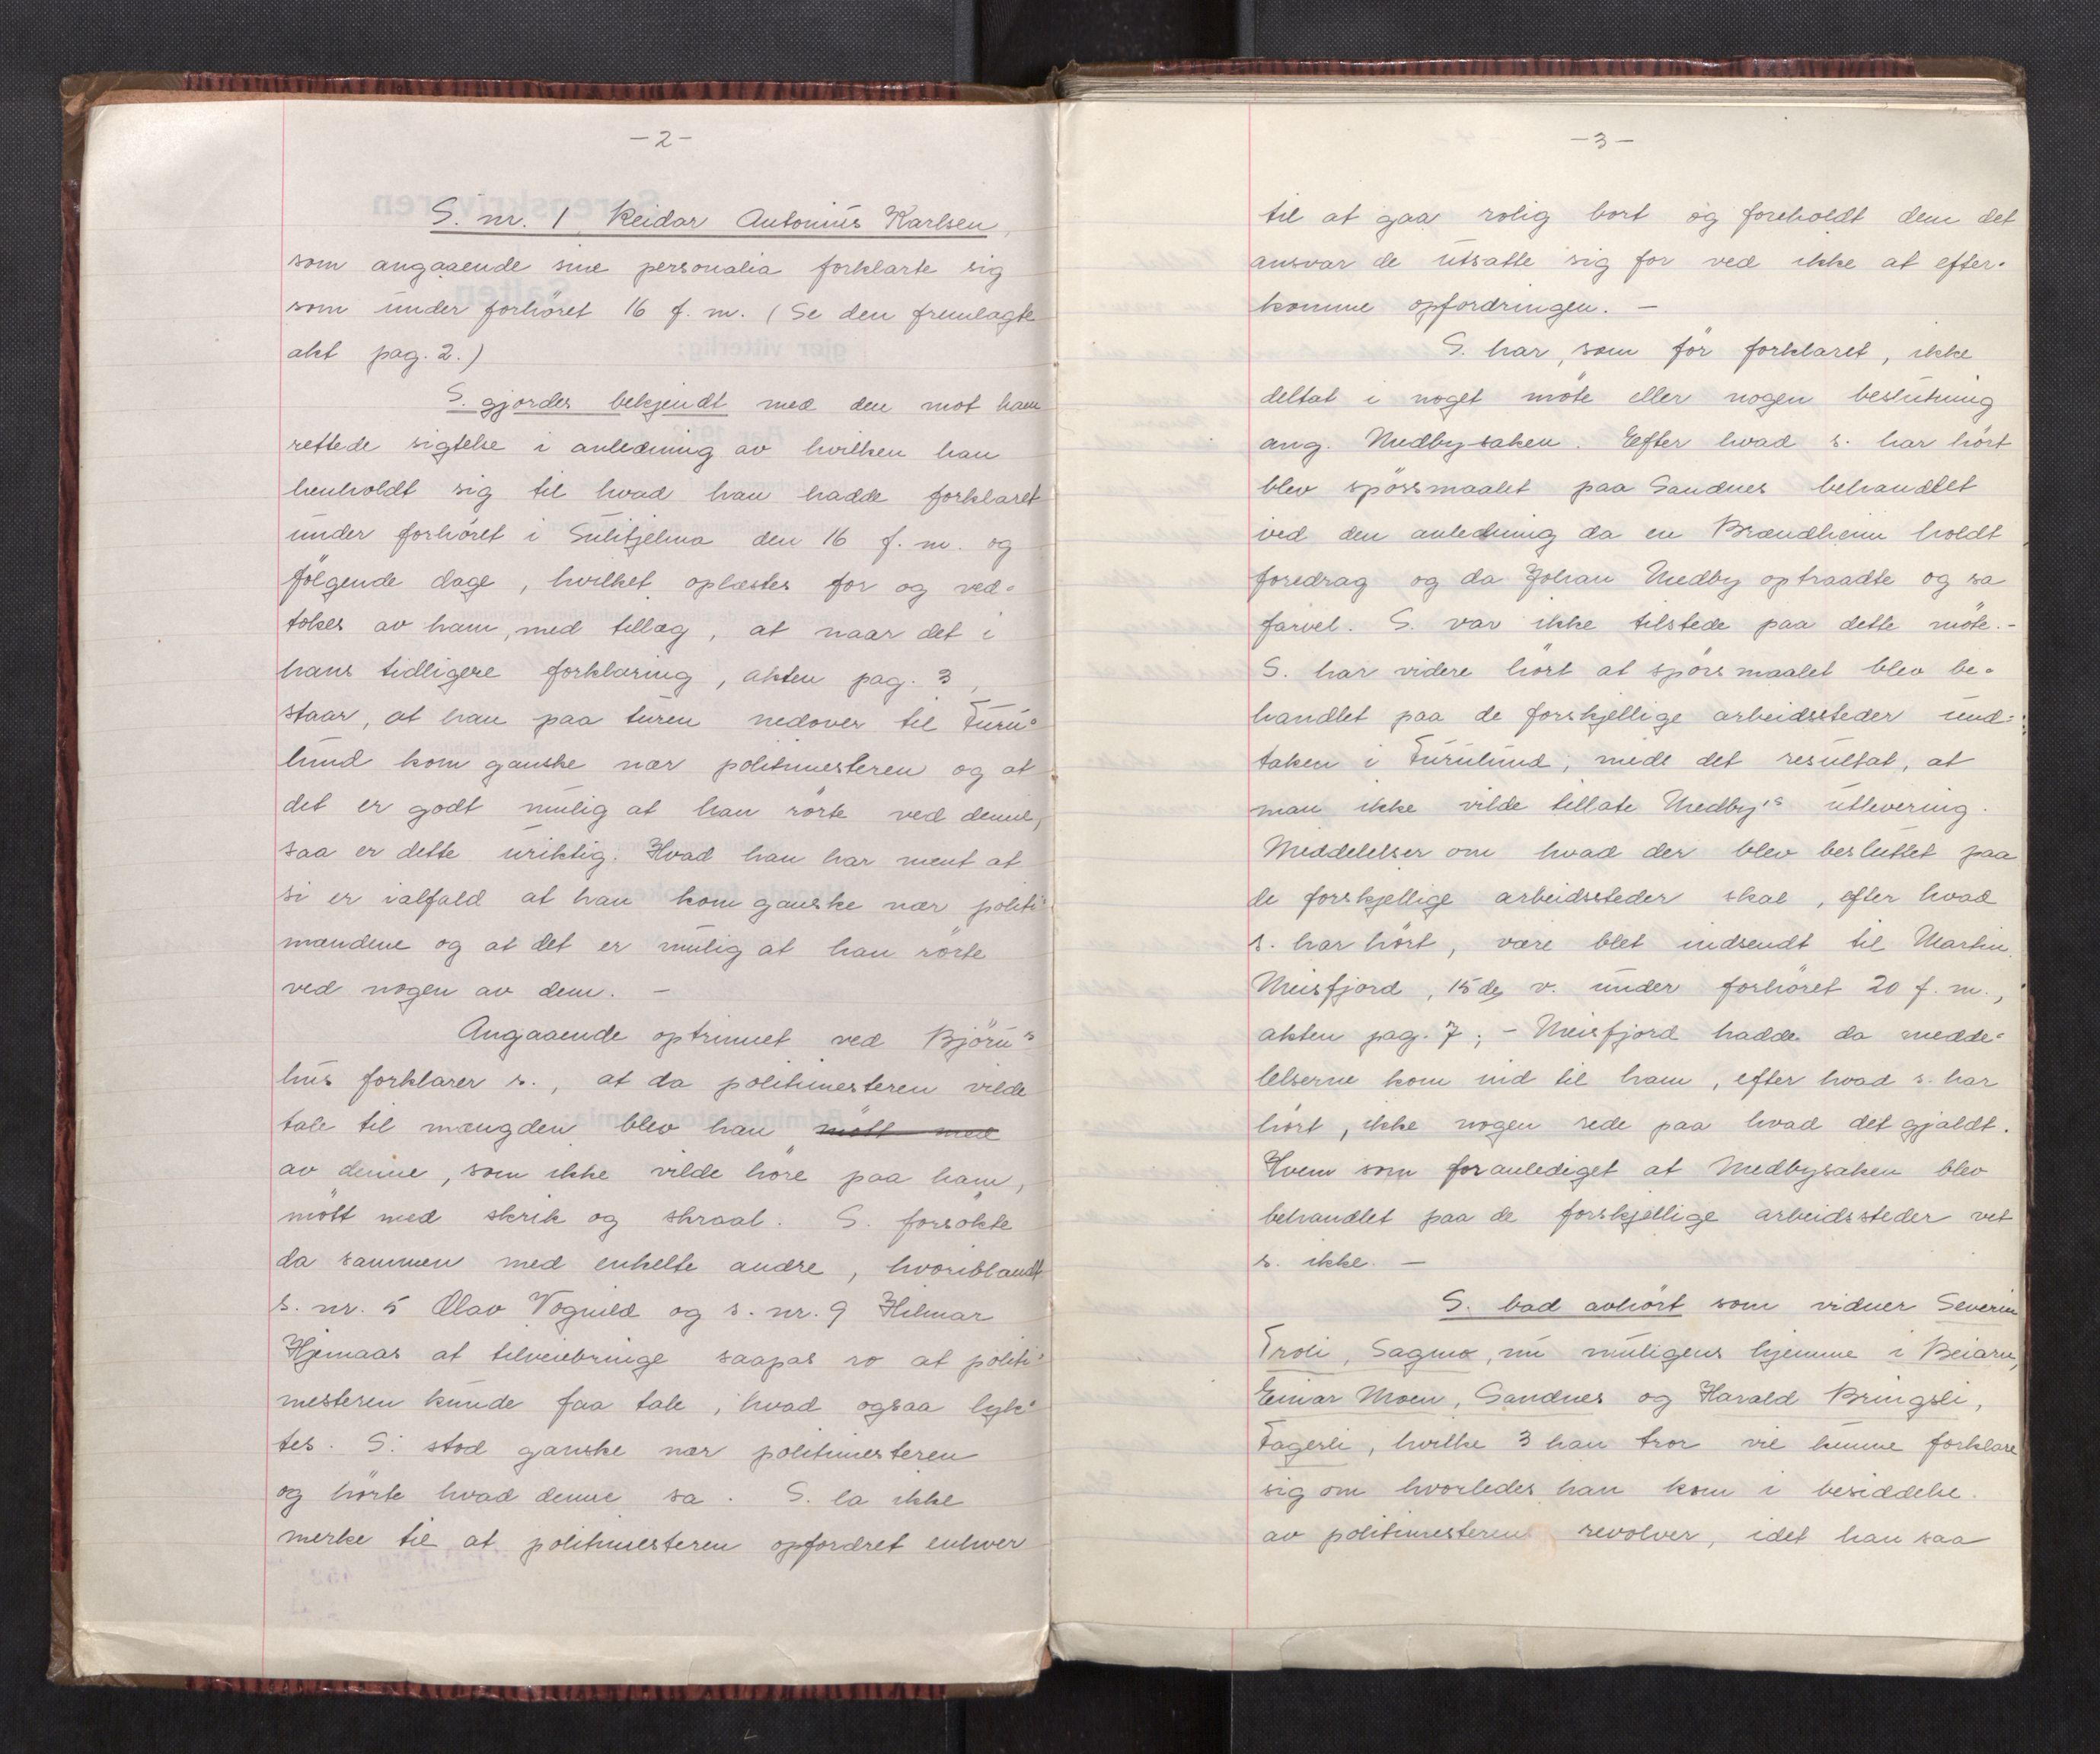 -2-
S. nr. 1 Reidar Antonius Karlsen,
som angaaende sine personalia forklarte sig
som under forhöret 16 f. m. (Se den fremlagte
akt pag. 2.)
S. gjordes bekjendt med den mot ham
rettede sigtelse i anledning av hvilken han
henholdt sig til hvad han hadde forklaret
under forhöret i Sulitjelma den 16 f. m. og
fölgende dage, hvilket oplæstes for og ved-
tokes av ham, med tillæg, at naar det i
hans tidligere forklaring, akten pag. 3,
staar, at han paa turen nedover til Furu-
lund kom ganske nær politimesteren og at
det er godt mulig at han rörte ved denne,
saa er dette uriktig. Hvad han har ment at
si er ialfald at han kom ganske nær politi-
mændene og at det er mulig at han rörte
ved nogen av dem. -
Angaaende optrinnet ved Björns-
hus forklarer s., at da politimesteren vilde
tale til mængden blev han mött med
av denne, som ikke vilde höre paa ham,
mött med skrik og skraal. S. forsökte
da sammen med enkelte andre, hvoriblandt
s. nr. 5 Olav Vognild og s. nr. 9 Hilmar
Hjemaas at tilveiebringe saapas ro at politi-
mesteren kunde faa tale, hvad ogsaa lyk-
tes. S. stod ganske nær politimesteren
og hörte hvad denne sa. S. la ikke
merke til at politimesteren opfordret enhver
-3-
til at gaa rolig bort og foreholdt dem det
ansvar de utsatte sig for ved ikke at efter-
komme opfordringen. -
S. har, som för forklaret, ikke
deltat i noget möte eller nogen beslutning
ang. Medbysaken. Efter hvad s. har hört
blev spörsmaalet paa Sandnes behandlet
ved den anledning da en Brændheim holdt
foredrag og da Johan Medby optraadte og sa
farvel. S. var ikke tilstede paa dette möte. -
S. har videre hört at spörsmaalet blev be-
handlet paa de forskjellige arbeidssteder und-
taken i Furulund, mede det resultat, at
man ikke vilde tillate Medby's utlevering.
Meddelelser om hvad der blev besluttet paa
de forskjellige arbeidssteder skal, efter hvad
s. har hört, være blet indsendt til Martin
Meisfjord, 15de v. under forhöret 20 f. m.,
akten pag. 7; - Meisfjord hadde da medde-
lelserne kom ind til ham, efter hvad s. har
hört, ikke nogen rede paa hvad det gjaldt.
Hvem som foranlediget at Medbysaken blev
behandlet paa de forskjellige arbeidssteder vet
s. ikke. -
S. bad avhört som vidner Severin
Troli, Sagmo, nu muligens hjemme i Beiarn,
Einar Moen, Sandnes og Harald Bringsli,
Fagerli, hvilke 3 han tror vil kunne forklare
sig om hvorledes han kom i besiddelse
av politimesterens revolver, idet han saa